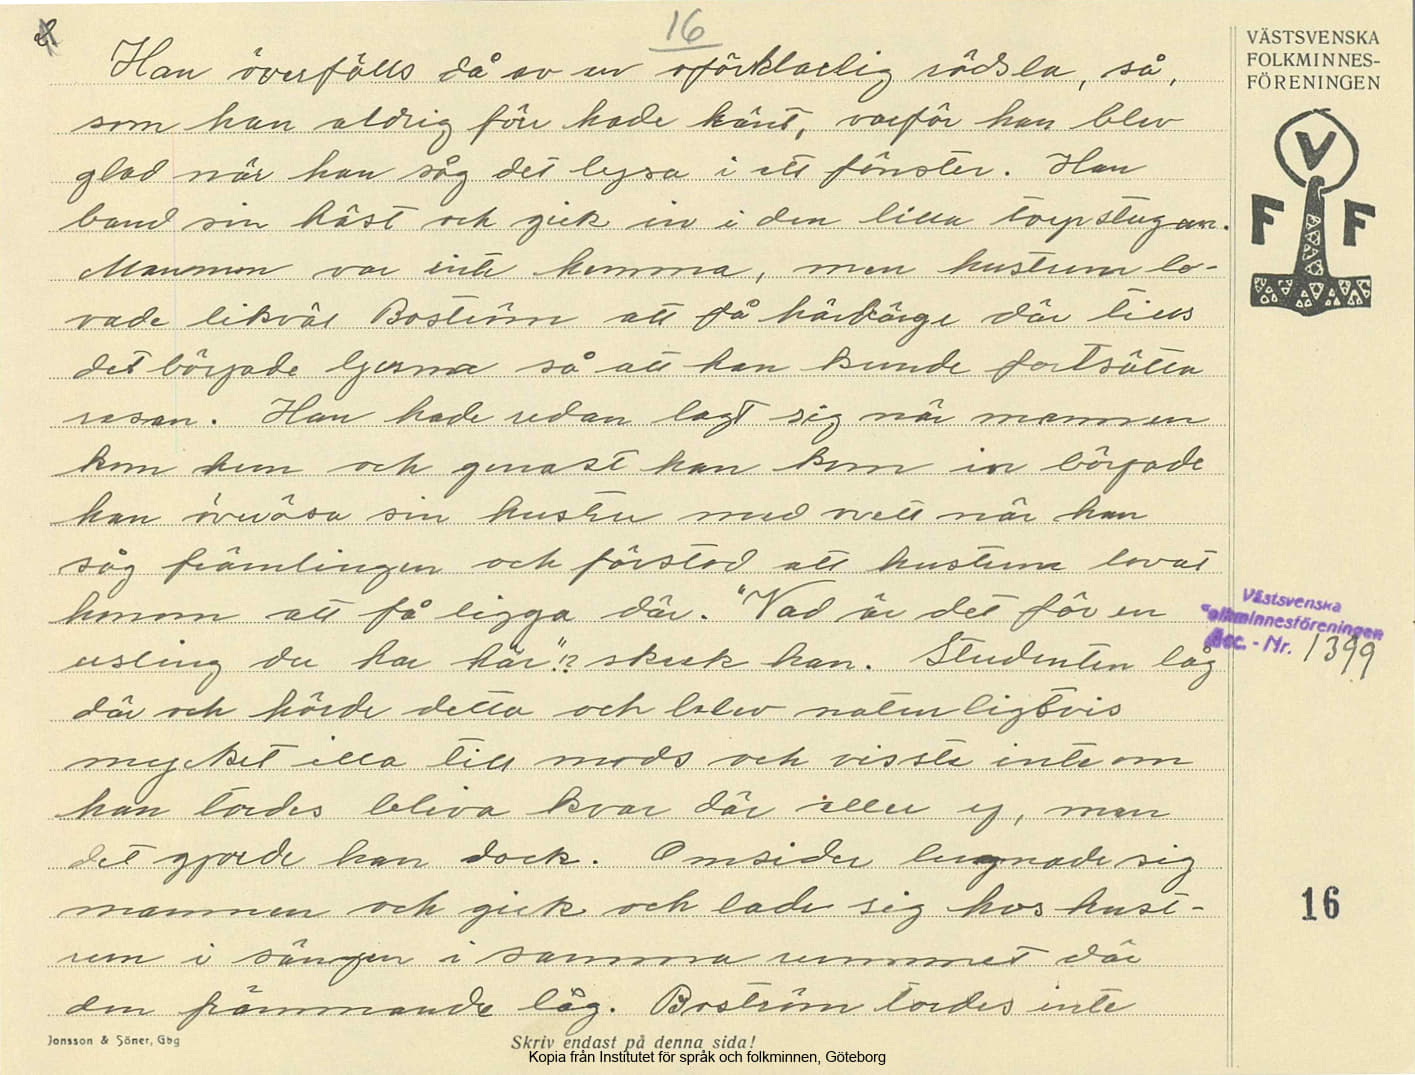 16
VÄSTSVENSKA
FOLKMINNES-
FÖRENINGEN
V
F F
Han överfölls då av en oförklarlig rädsla, så,
som han aldrig förr hade känt, varför han blev
glad när han såg det lysa i ett fönster. Han
band sin häst och gick in i den lilla torpstugan.
Mannen var inte hemma, men hustrun lo-
vade likväl Boström att få härbärge där tills
det började ljusna så att han kunde fortsätta
resan. Han hade redan lagt sig när mannen
kom hem och genast han kom in började
han överösa sin hustru med ovett när han
såg främlingen och förstod att hustrun lovat
honom att få ligga där. "Vad är det för en
usling du har här"!? skrek han. Studenten låg
där och hörde detta och blev naturligtvis
mycket illa till mods och visste inte om
han tordes bliva kvar där eller ej, men
det gjorde han dock. Omsider lugnade sig
mannen och gick och lade sig hos hust-
run i sängen i samma rummet där
den främmande låg. Boström tordes inte
Västsvenska
Folkminnesföreningen
Acc. - Nr. 1399
16
Jonsson & Söner, Gbg
Skriv endast på denna sida!
Kopia från Institutet för språk och folkminnen, Göteborg